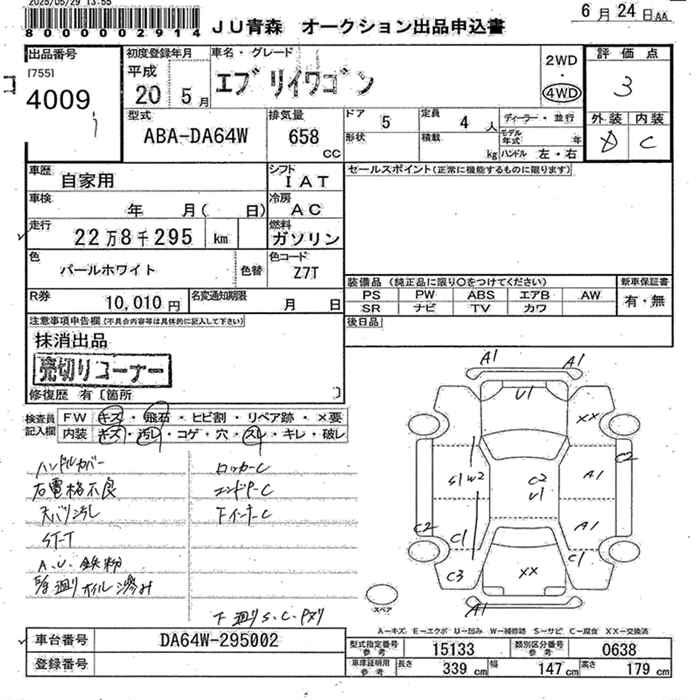 2025/05/29 13:55
8000002914
JU青森 オークション出品申込書
6月24日AA
出品番号
[755]
4009
初度登録年月
平成
20 5月
車名・グレード
エブリイワゴン
2WD
・
4WD
評価点
3
型式
ABA-DA64W
排気量
658
CC
ドア
5
定員
4人
形状
積載
kg
ディーラー・並行
モデル年式 年
ハンドル 左・右
外装 内装
D C
車歴
自家用
シフト
IAT
車検
年 月( 日)
冷房
AC
走行
22万8千295 km
燃料
ガソリン
色
パールホワイト
色替
色コード
Z7T
R券
10,010円
名変通知期限
月 日
セールスポイント(正常に機能するものに限ります)
装備品(純正品に限り○をつけてください)
PS PW ABS エアB AW
SR ナビ TV カワ
新車保証書
有・無
後日品
注意事項申告欄(不具合内容等は具体的に記入して下さい)
抹消出品
売切りコーナー
修復歴 有〔箇所 〕
検査員記入欄
FW キズ・飛石・ヒビ割・リペア跡・×要
内装 キズ・汚レ・コゲ・穴・スレ・キレ・破レ
ハンドルカバー
右電格不良
天バリ汚し
ST-T
A.U.鉄粉
E/g廻りオイル滲み
ロッカーC
エンドP-C
下インナーC
下廻りS.C.Pヌリ
A1 A1
U1
XX
C2
S1 W2
C2
U1
A1
A1
C2
C1
C1
C3
XX
A1
スペア
A―キズ E―エクボ U―凹み W―補修跡 S―サビ C―腐食 XX―交換済
車台番号
DA64W-295002
登録番号
型式指定番号
参考
15133
類別区分番号
参考
0638
車庫証明用
参考
長さ 339 cm
幅 147 cm
高さ 179 cm